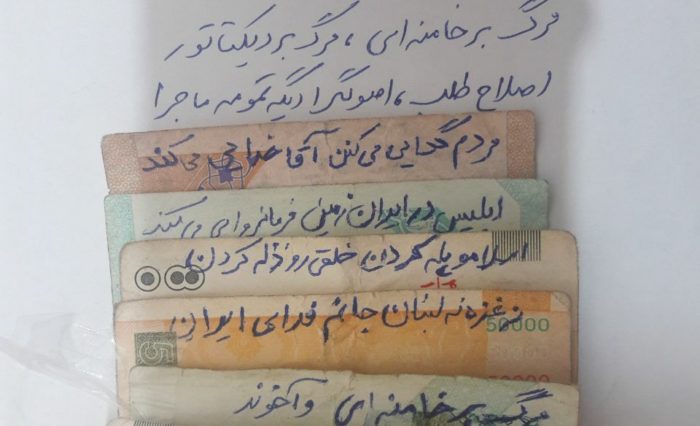 مرگ بر خامنه ای ، مرگ بر دیکتاتور
اصلاح طلب ، اصولگرا دیگه تمومه ماجرا
مردم گدایی می کنن آقا خدایی می کند
ابلیس در ایران زمین فرمانروایی می کند
اسلامو پله کردن، خلقی رو ذله کردن
نه غزه نه لبنان جانم فدای ایران
50000
50000
مرگ بر خامنه ای و آخوند